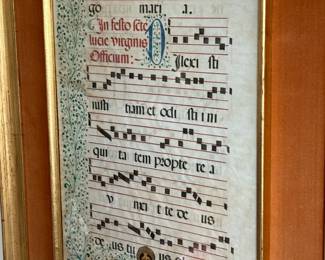 go mari a.
In festo scte
lucie virginis
Officium:
Dilexi sti
iusti tiam et odi sti ini
qui ta tem propte re a
v nxi t te de us
de us tu us